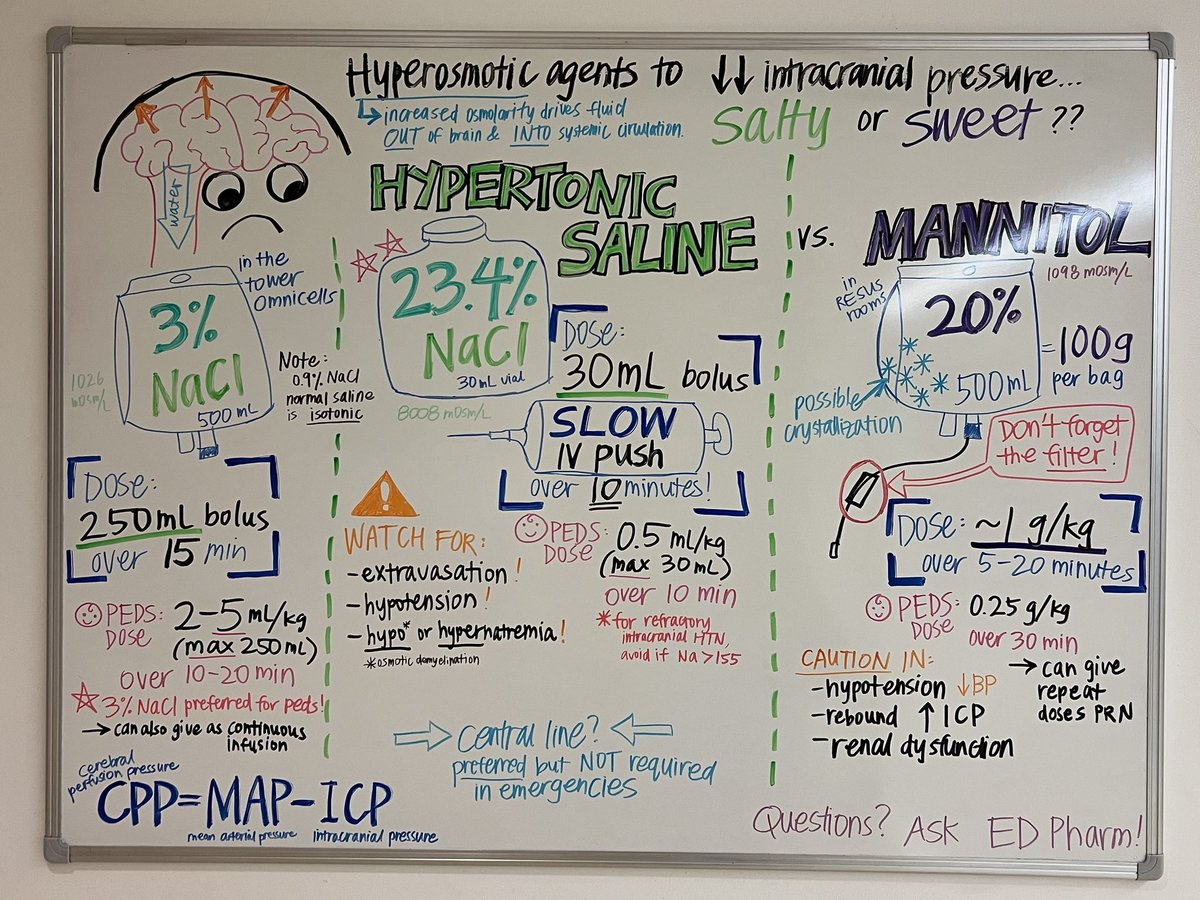 Hyperosmotic agents to ↓↓ intracranial pressure...
↳ increased osmolarity drives fluid
OUT of brain & INTO systemic circulation.
Salty or Sweet ??
water
HYPERTONIC
SALINE
vs.
MANNITOL
in the
tower
omnicells
3%
NaCl
500 mL
1026
mOsm/L
Note:
0.9% NaCl
normal saline
is isotonic
DOSE:
250mL bolus
over 15 min
PEDS:
DOSE
2-5 mL/kg
(max 250 mL)
over 10-20 min
☆ 3% NaCl preferred for peds!
→ can also give as continuous
infusion
23.4%
NaCl
30mL vial
8008 mOsm/L
DOSE:
30mL bolus
SLOW
IV push
over 10 minutes!
WATCH FOR:
-extravasation!
-hypotension!
-hypo* or hypernatremia!
*osmotic demyelination
PEDS:
DOSE
0.5 ml/kg
(max 30 mL)
over 10 min
*for refractory
intracranial HTN,
avoid if Na >155
Central line?
preferred but NOT required
in emergencies
1098 mOsm/L
in
RESUS
rooms
20%
500 mL
=100g
per bag
possible
crystallization
Don't forget
the filter!
DOSE: ~1 g/kg
over 5-20 minutes
PEDS:
DOSE
0.25 g/kg
over 30 min
→ can give
repeat
doses PRN
CAUTION IN:
-hypotension ↓BP
-rebound ↑ ICP
-renal dysfunction
cerebral
perfusion pressure
CPP=MAP-ICP
mean arterial pressure
intracranial pressure
Questions? Ask ED Pharm!